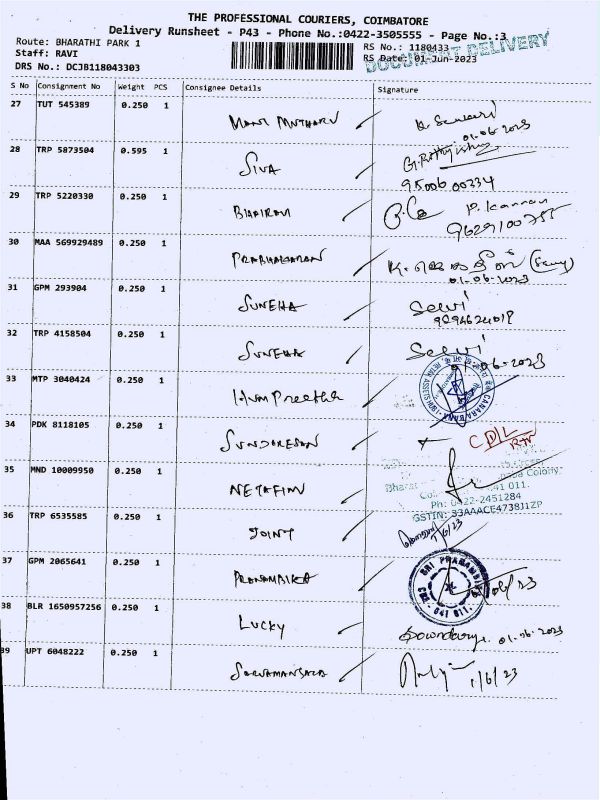 THE PROFESSIONAL COURIERS, COIMBATORE
Delivery Runsheet - P43 - Phone No.:0422-3505555 - Page No.:3
Route: BHARATHI PARK 1
RS No.: 1180433
DOCUMENT DELIVERY
Staff: RAVI
RS Date: 01-Jun-2023
DRS No.: DCJB118043303
S No Consignment No Weight PCS Consignee Details Signature
27 TUT 545389 0.250 1 MANI MUTHARU
01-06-2023
28 TRP 5873504 0.595 1 SIVA
9500600334
29 TRP 5220330 0.250 1 BHAIRAVI P. Kannan
9629100755
30 MAA 569929489 0.250 1 PRABHAKARAN
01-06-2023
31 GPM 293904 0.250 1 SUNEHA Selvi
9894624018
32 TRP 4158504 0.250 1 SUNEHA Selvi
-06-2023
33 MTP 3040424 0.250 1 Preetha
CANARA BANK
34 PDK 8118105 0.250 1 SUNDARESAN CDL
35 MND 10009950 0.250 1 NETAFIM
Colony,
641 011.
Ph: 0422-2451284
GSTIN: 33AAACE4738J1ZP
36 TRP 6535585 0.250 1 JOINT
1/6/23
37 GPM 2065641 0.250 1 PRANAMBIKA
SRI PRANAMBI
CBE - 641 011.
38 BLR 1650957256 0.250 1 LUCKY Soundarya. 01-06-2023
39 UPT 6048222 0.250 1 SARVAMANGALA 1/6/23